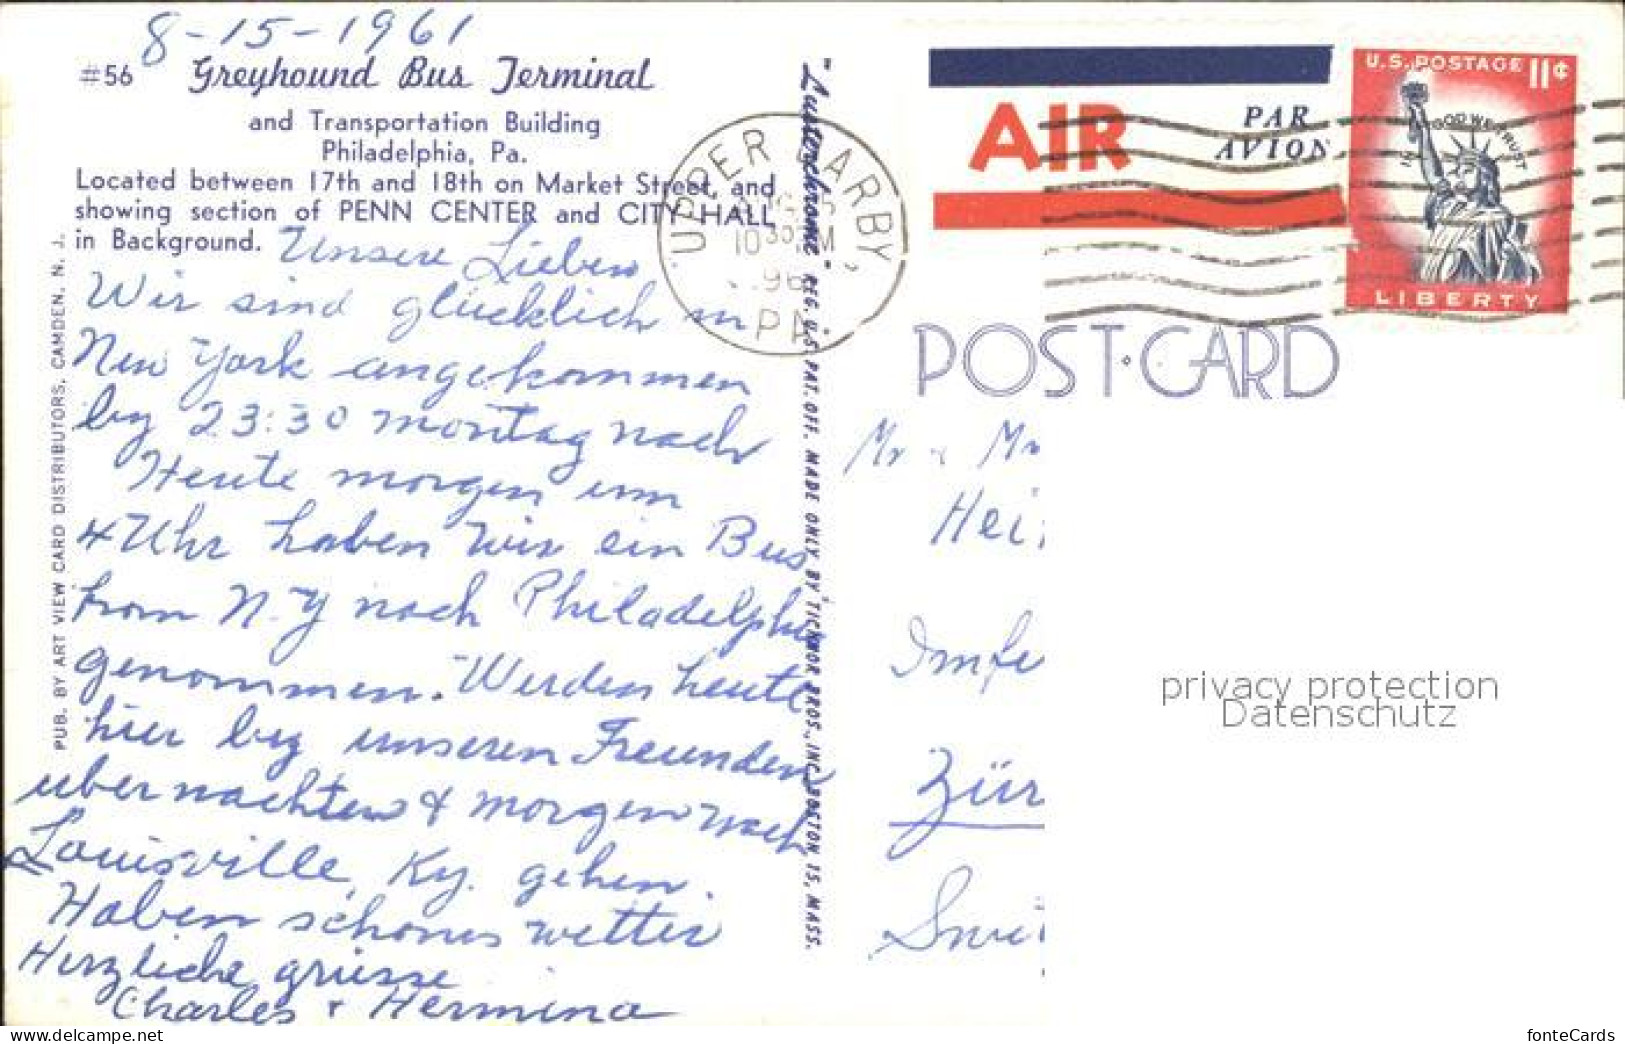 8-15-1961
#56 Greyhound Bus Terminal
and Transportation Building
Philadelphia, Pa.
Located between 17th and 18th on Market Street, and
showing section of PENN CENTER and CITY HALL
in Background.
Unsere Lieben
Wir sind glücklich in
New York angekommen
by 23:30 montag nach
Heute morgen um
4 Uhr haben wir ein Bus
from N.Y nach Philadelphia
genommen. Werden heute
hier by unseren Freunden
ubernachten & morgen nach
Louisville, Ky. gehen.
Haben schones wetter
Herzliche grüsse
Charles + Hermina
PUB. BY ART VIEW CARD DISTRIBUTORS, CAMDEN, N. J.
"Lusterchrome" REG. U.S. PAT. OFF. MADE ONLY BY TICHNOR BROS., INC., BOSTON, 15, MASS.
UPPER DARBY,
10 30 M
196
PA
AIR
PAR
AVION
U.S. POSTAGE 11¢
IN GOD WE TRUST
LIBERTY
POST·CARD
Mr & Mr
Hei
Imfe
Zür
Swi
privacy protection
Datenschutz
fonteCards